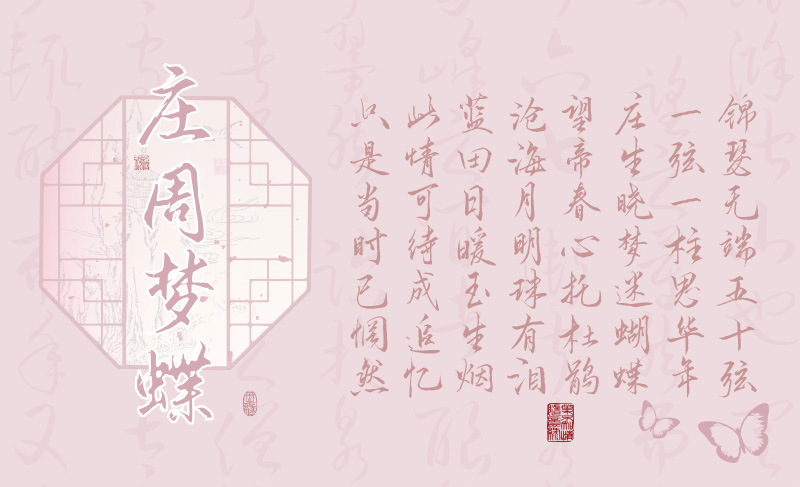 锦瑟无端五十弦
一弦一柱思华年
庄生晓梦迷蝴蝶
望帝春心托杜鹃
沧海月明珠有泪
蓝田日暖玉生烟
此情可待成追忆
只是当时已惘然
庄周梦蝶